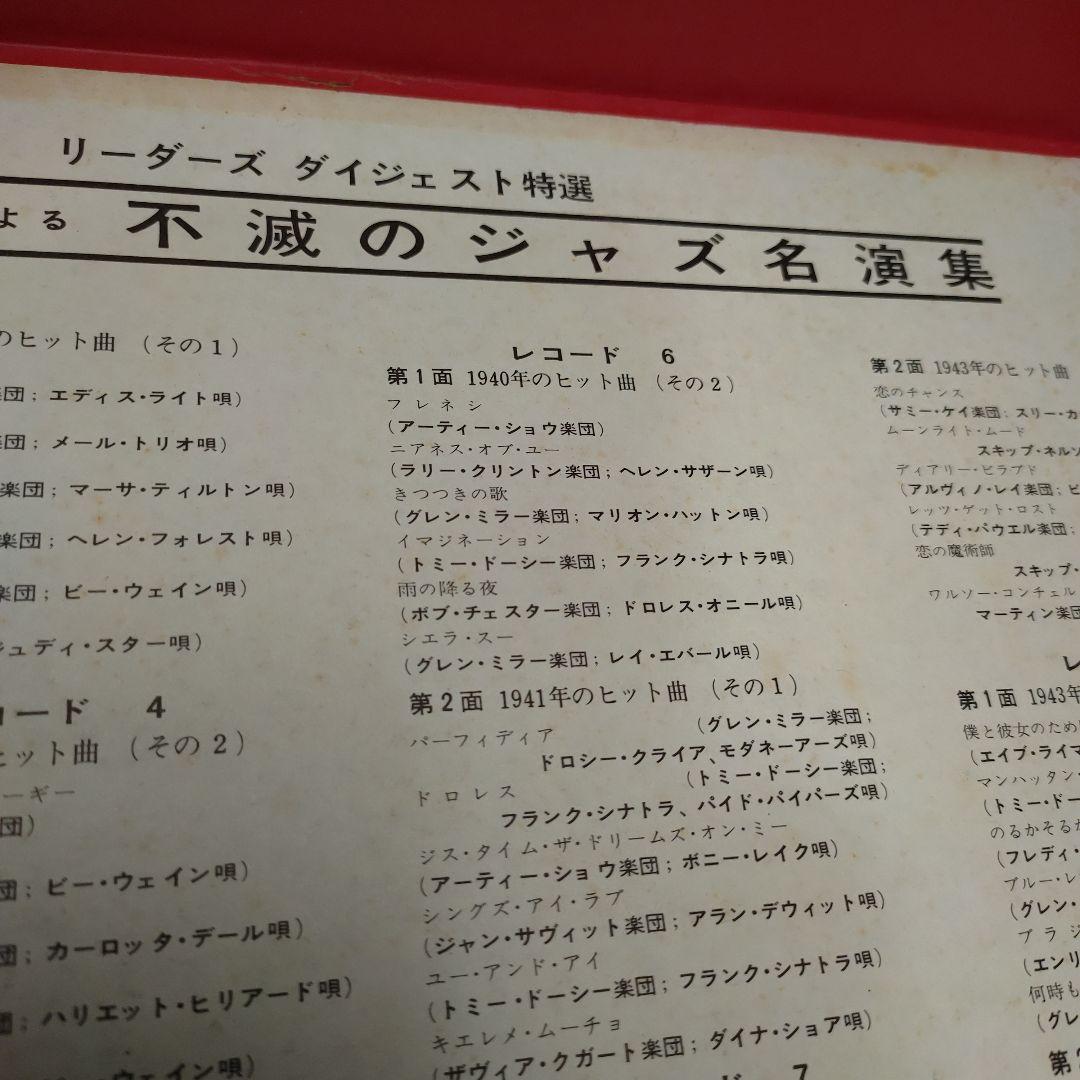 リーダーズ ダイジェスト特選
よる 不滅のジャズ名演集
のヒット曲 (その1)
楽団; エディス・ライト唄)
楽団; メール・トリオ唄)
楽団; マーサ・ティルトン唄)
楽団; ヘレン・フォレスト唄)
楽団; ビー・ウェイン唄)
ジュディ・スター唄)
コード 4
ヒット曲 (その2)
ーギー
団)
団; ビー・ウェイン唄)
団; カーロッタ・デール唄)
団; ハリエット・ヒリアード唄)
ウェイン唄)
レコード 6
第1面 1940年のヒット曲 (その2)
フレネシ
(アーティー・ショウ楽団)
ニアネス・オブ・ユー
(ラリー・クリントン楽団; ヘレン・サザーン唄)
きつつきの歌
(グレン・ミラー楽団; マリオン・ハットン唄)
イマジネーション
(トミー・ドーシー楽団; フランク・シナトラ唄)
雨の降る夜
(ボブ・チェスター楽団; ドロレス・オニール唄)
シエラ・スー
(グレン・ミラー楽団; レイ・エバール唄)
第2面 1941年のヒット曲 (その1)
パーフィディア (グレン・ミラー楽団;
ドロシー・クライア、モダネーアーズ唄)
ドロレス (トミー・ドーシー楽団;
フランク・シナトラ、パイド・パイパーズ唄)
ジス・タイム・ザ・ドリームズ・オン・ミー
(アーティー・ショウ楽団; ボニー・レイク唄)
シングズ・アイ・ラブ
(ジャン・サヴィット楽団; アラン・デウィット唄)
ユー・アンド・アイ
(トミー・ドーシー楽団; フランク・シナトラ唄)
キエレメ・ムーチョ
(ザヴィア・クガート楽団; ダイナ・ショア唄)
ド 7
第2面 1943年のヒット曲
恋のチャンス
(サミー・ケイ楽団; スリー・カ
ムーンライト・ムード
スキップ・ネルソ
ディアリー・ビラブド
(アルヴィノ・レイ楽団; ビ
レッツ・ゲット・ロスト
(テディ・パウエル楽団;
恋の魔術師
スキップ・
ワルソー・コンチェル
マーティン楽団
レ
第1面 1943年
僕と彼女のため
(エイブ・ライマ
マンハッタン・
(トミー・ドー
のるかそるか
(フレディ・
ブルー・レ
(グレン・
ブラジ
(エンリ
何時も
(グレ
第2